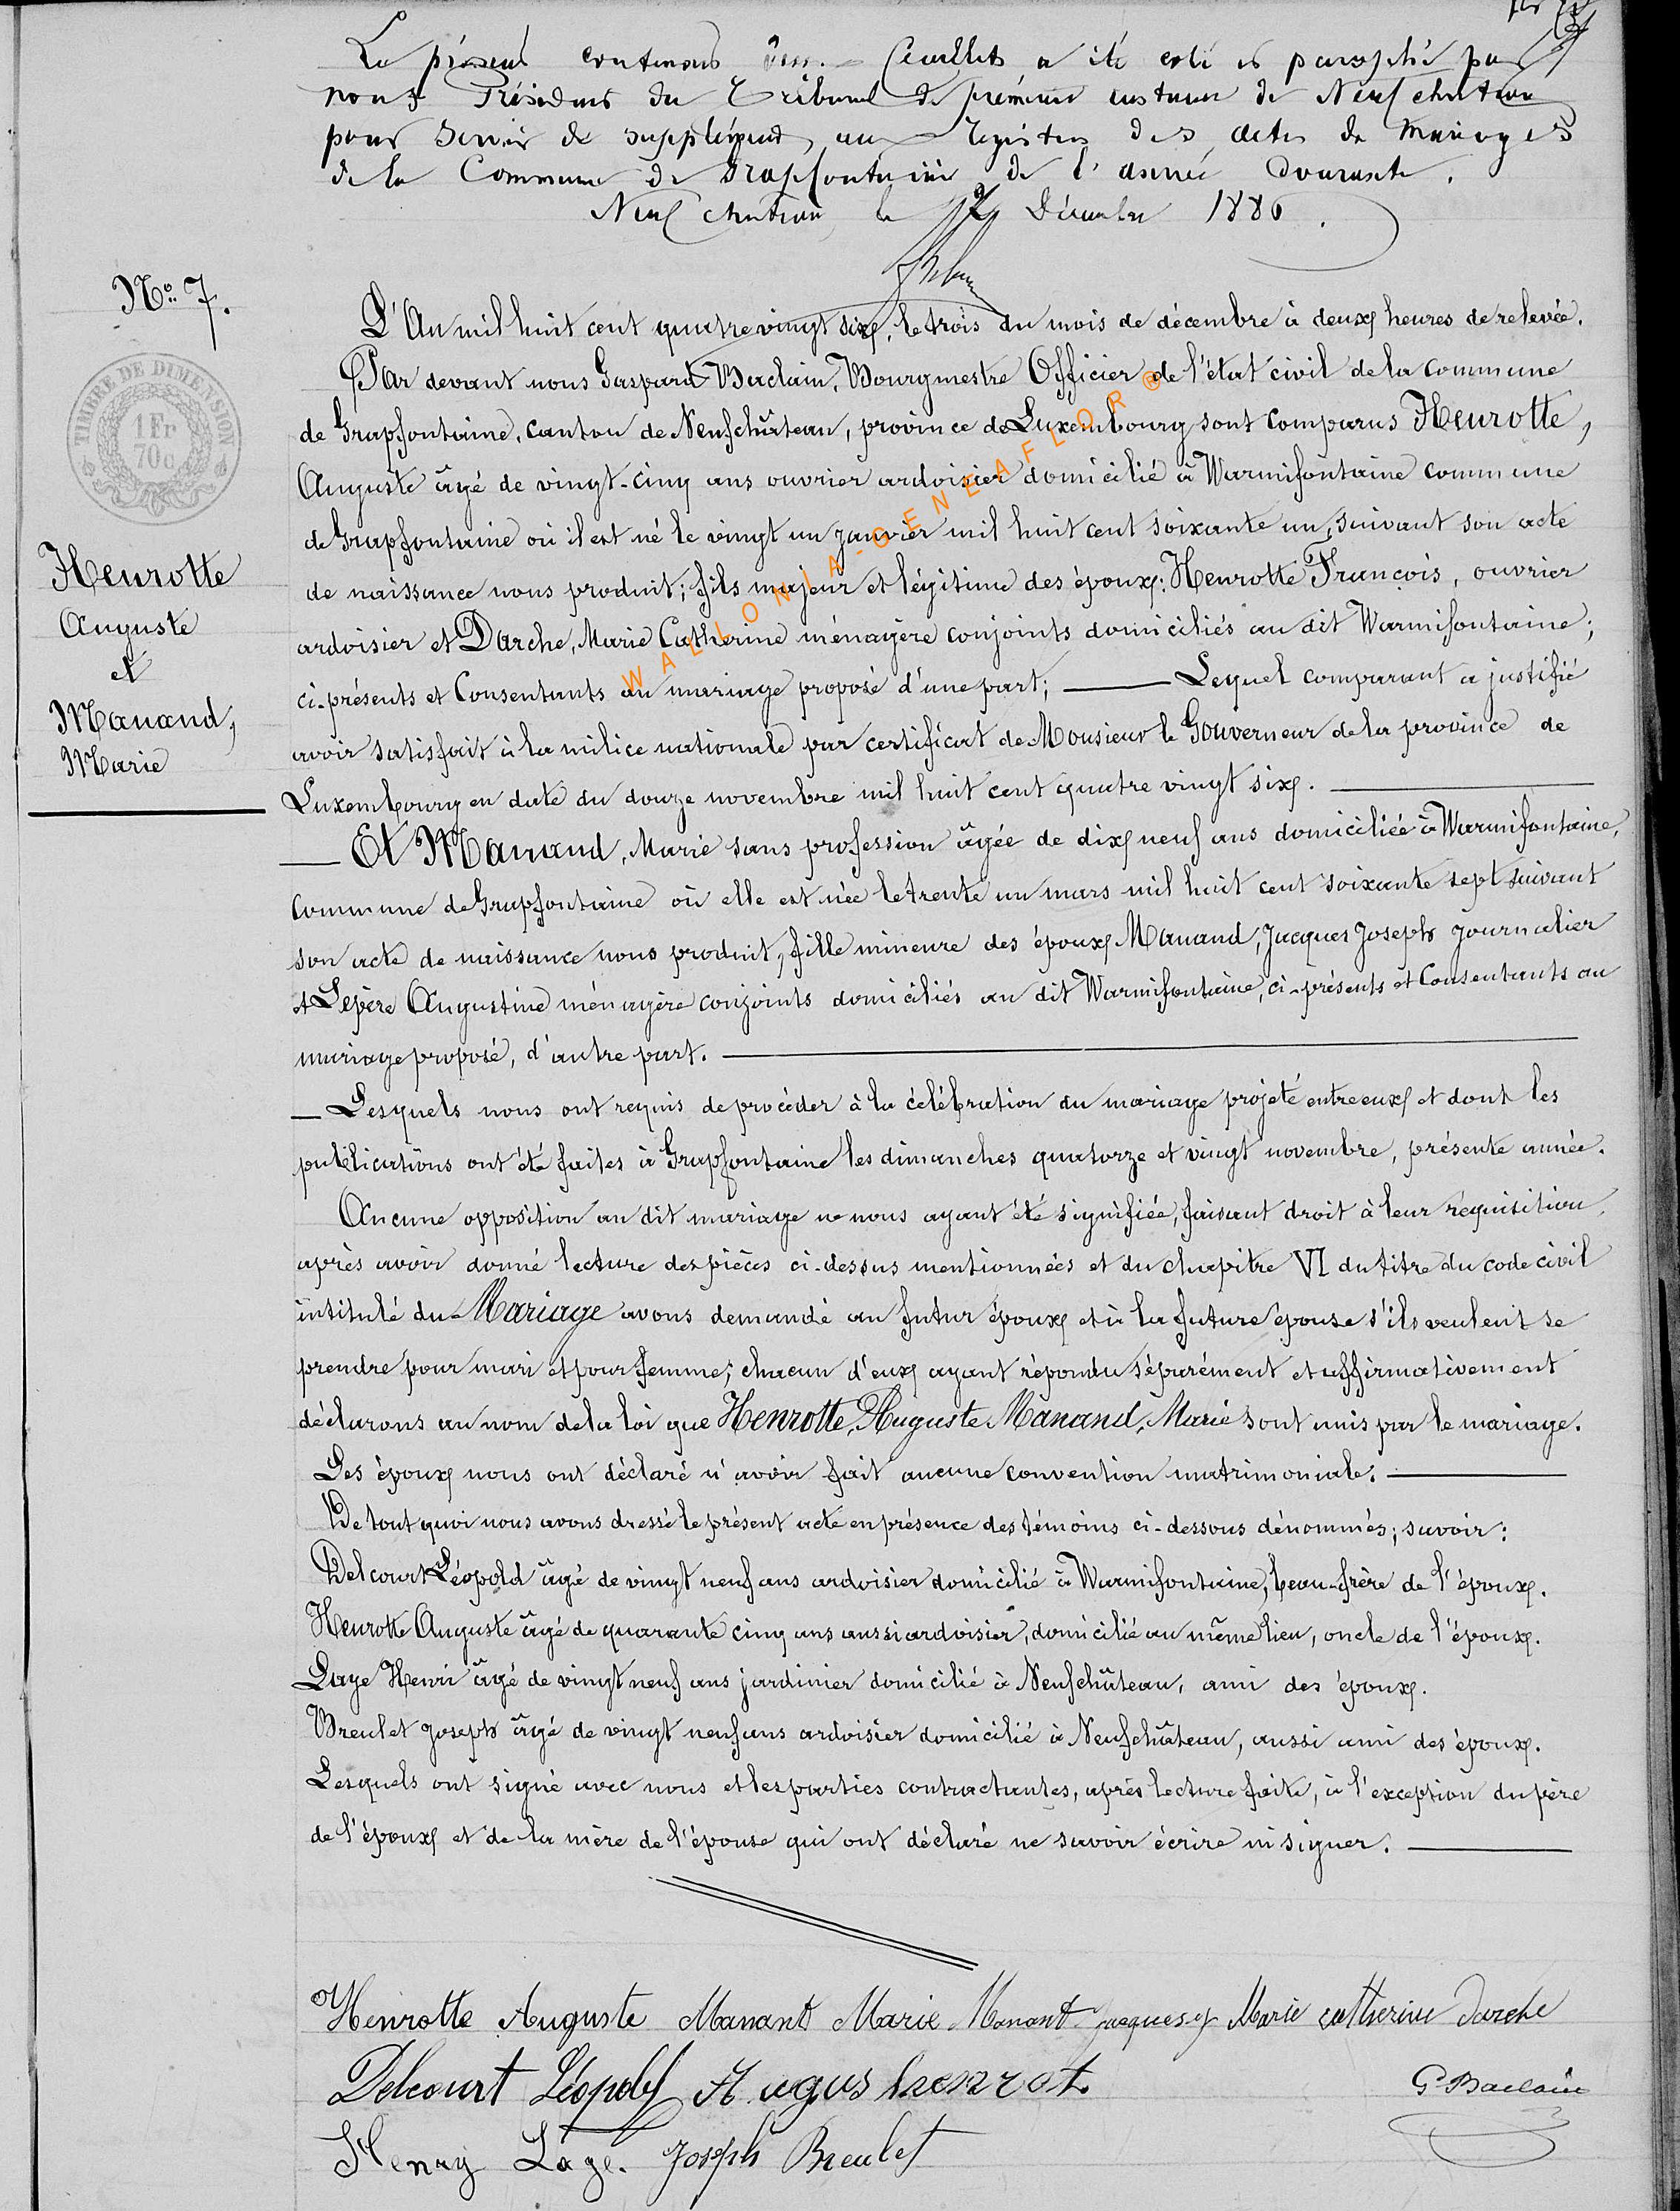 Le présent contenant un feuillet a été coté et paraphé par
nous Président du Tribunal de première instance de Neufchateau
pour servir de supplément au registre des actes de mariages
de la Commune de Grapfontaine de l'année courante.
Neufchateau le Décembre 1886.
No. 7.
TIMBRE DE DIMENSION
1 Fr
70c
Henrotte
Auguste
et
Manand,
Marie
L'An mil huit cent quatre vingt six, le trois du mois de décembre à deux heures de relevée.
Par devant nous Gaspard Baclain, Bourgmestre Officier de l'état civil de la commune
de Grapfontaine, canton de Neufchâteau, province de Luxembourg sont comparus Henrotte,
Auguste âgé de vingt-cinq ans ouvrier ardoisier domicilié à Warmifontaine commune
de Grapfontaine où il est né le vingt un janvier mil huit cent soixante un, suivant son acte
de naissance nous produit; fils majeur et légitime des époux: Henrotte François, ouvrier
ardoisier et Darche, Marie Catherine ménagère conjoints domiciliés au dit Warmifontaine;
ci-présents et Consentants au mariage proposé d'une part; Lequel comparant a justifié
avoir satisfait à la milice nationale par certificat de Monsieur le Gouverneur de la province de
Luxembourg en date du douze novembre mil huit cent quatre vingt six.
Et Manand, Marie sans profession âgée de dix neuf ans domiciliée à Warmifontaine,
commune de Grapfontaine où elle est née le trente un mars mil huit cent soixante sept suivant
son acte de naissance nous produit, fille mineure des époux Manand, Jacques Joseph journalier
et Lepère Augustine ménagère conjoints domiciliés au dit Warmifontaine, ci-présents et Consentants au
mariage proposé, d'autre part.
Lesquels nous ont requis de procéder à la célébration du mariage projeté entre eux et dont les
publications ont été faites à Grapfontaine les dimanches quatorze et vingt novembre, présente année.
Aucune opposition au dit mariage ne nous ayant été signifiée, faisant droit à leur réquisition,
après avoir donné lecture des pièces ci-dessus mentionnées et du chapitre VI du titre du code civil
intitulé du Mariage avons demandé au futur époux et à la future épouse s'ils veulent se
prendre pour mari et pour femme; chacun d'eux ayant répondu séparément et affirmativement
déclarons au nom de la loi que Henrotte, Auguste Manand, Marie sont unis par le mariage.
Les époux nous ont déclaré n'avoir fait aucune convention matrimoniale.
De tout quoi nous avons dressé le présent acte en présence des témoins ci-dessous dénommés; savoir:
Delcourt Léopold âgé de vingt neuf ans ardoisier domicilié à Warmifontaine, beau-frère de l'époux.
Henrotte Auguste âgé de quarante cinq ans aussi ardoisier, domicilié au même lieu, oncle de l'époux.
Laye Henri âgé de vingt neuf ans jardinier domicilié à Neufchâteau, ami des époux.
Breulet Joseph âgé de vingt neuf ans ardoisier domicilié à Neufchâteau, aussi ami des époux.
Lesquels ont signé avec nous et les parties contractantes, après lecture faite, à l'exception du père
de l'époux et de la mère de l'épouse qui ont déclaré ne savoir écrire ni signer.
Henrotte Auguste Manant Marie Manant Jacques J Marie catherine Darche
Delcourt Léopold Augus henrot. G Baclain
Henry Lage. Joseph Breulet
WALLONIA-GENEAFLOR®